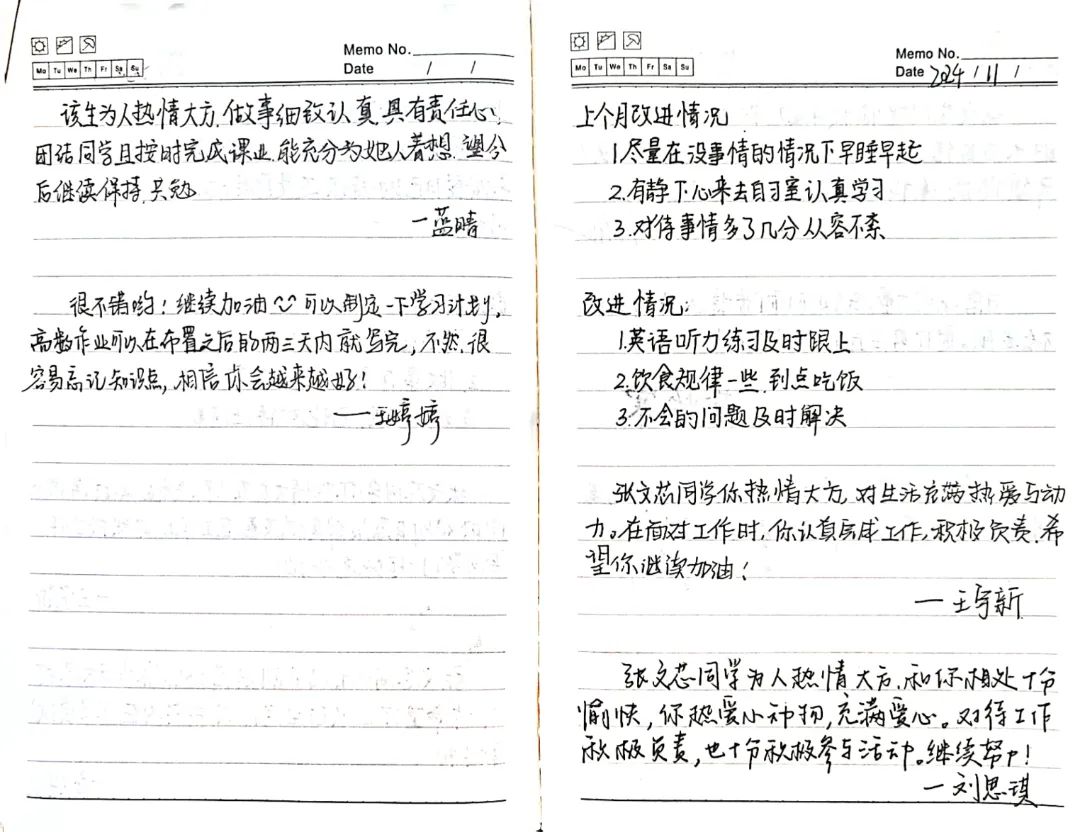 Memo No.
Mo Tu We Th Fr Sa Su
Date / /
该生为人热情大方,做事细致认真,具有责任心,
团结同学且按时完成课业,能充分为他人着想,望今
后继续保持,共勉
—蓝晴
很不错哟!继续加油 可以制定一下学习计划,
高数作业可以在布置之后的两三天内就写完,不然很
容易忘记知识点,相信你会越来越好!
——王婷婷
Memo No.
Mo Tu We Th Fr Sa Su
Date 2024 / 11 /
上个月改进情况
1.尽量在没事情的情况下早睡早起
2.有静下心来去自习室认真学习
3.对待事情多了几分从容不紊
改进情况:
1.英语听力练习及时跟上
2.饮食规律一些,到点吃饭
3.不会的问题及时解决
张文芯同学你热情大方,对生活充满热爱与动
力。在面对工作时,你认真完成工作,积极负责,希
望你继续加油!
—王宇新
张文芯同学为人热情大方,和你相处十分
愉快,你热爱小动物,充满爱心。对待工作
积极负责,也十分积极参与活动。继续努力!
—刘思琪